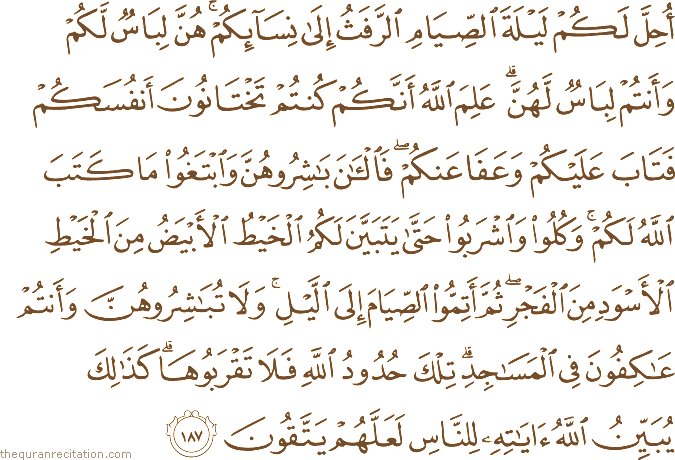 أُحِلَّ لَكُمْ لَيْلَةَ ٱلصِّيَامِ ٱلرَّفَثُ إِلَىٰ نِسَآئِكُمْ ۚ هُنَّ لِبَاسٌ لَّكُمْ
وَأَنتُمْ لِبَاسٌ لَّهُنَّ ۗ عَلِمَ ٱللَّهُ أَنَّكُمْ كُنتُمْ تَخْتَانُونَ أَنفُسَكُمْ
فَتَابَ عَلَيْكُمْ وَعَفَا عَنكُمْ ۖ فَٱلْـَٔـٰنَ بَـٰشِرُوهُنَّ وَٱبْتَغُوا۟ مَا كَتَبَ
ٱللَّهُ لَكُمْ ۚ وَكُلُوا۟ وَٱشْرَبُوا۟ حَتَّىٰ يَتَبَيَّنَ لَكُمُ ٱلْخَيْطُ ٱلْأَبْيَضُ مِنَ ٱلْخَيْطِ
ٱلْأَسْوَدِ مِنَ ٱلْفَجْرِ ۖ ثُمَّ أَتِمُّوا۟ ٱلصِّيَامَ إِلَى ٱلَّيْلِ ۚ وَلَا تُبَـٰشِرُوهُنَّ وَأَنتُمْ
عَـٰكِفُونَ فِى ٱلْمَسَـٰجِدِ ۗ تِلْكَ حُدُودُ ٱللَّهِ فَلَا تَقْرَبُوهَا ۗ كَذَٰلِكَ
يُبَيِّنُ ٱللَّهُ ءَايَـٰتِهِۦ لِلنَّاسِ لَعَلَّهُمْ يَتَّقُونَ ١٨٧
thequranrecitation.com